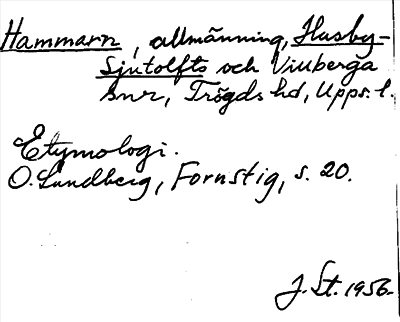 Hammarn, allmänning, Husby-
Sjutolfts och Viuberga
snr, Trögds hd, Upps. l.
Etymologi.
O. Lundberg, Fornstig, s. 20.
J. St. 1956.